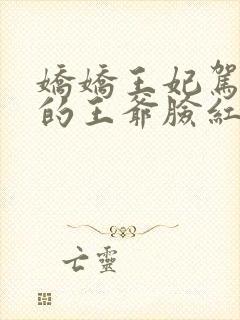 嬌嬌王妃駕
的王爺臉紅
亡靈